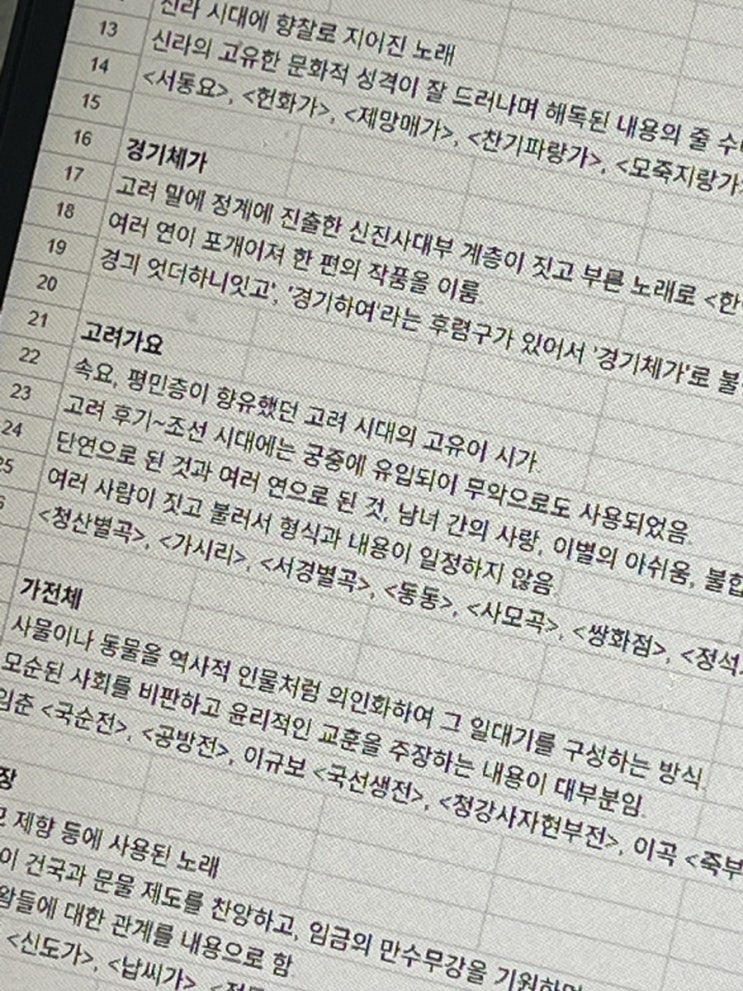 13 신라 시대에 향찰로 지어진 노래
14 신라의 고유한 문화적 성격이 잘 드러나며 해독된 내용의 줄 수
15 <서동요>, <헌화가>, <제망매가>, <찬기파랑가>, <모죽지랑가>
16
17 경기체가
18 고려 말에 정계에 진출한 신진사대부 계층이 짓고 부른 노래로 <한
19 여러 연이 포개어져 한 편의 작품을 이룸.
20 경긔 엇더하니잇고', '경기하여'라는 후렴구가 있어서 '경기체가'로 불
21
22 고려가요
23 속요, 평민층이 향유했던 고려 시대의 고유어 시가.
24 고려 후기~조선 시대에는 궁중에 유입되어 무악으로도 사용되었음.
25 단연으로 된 것과 여러 연으로 된 것, 남녀 간의 사랑, 이별의 아쉬움, 불합
여러 사람이 짓고 불러서 형식과 내용이 일정하지 않음.
<청산별곡>, <가시리>, <서경별곡>, <동동>, <사모곡>, <쌍화점>, <정석
가전체
사물이나 동물을 역사적 인물처럼 의인화하여 그 일대기를 구성하는 방식.
모순된 사회를 비판하고 윤리적인 교훈을 주장하는 내용이 대부분임.
임춘 <국순전>, <공방전>, 이규보 <국선생전>, <청강사자현부전>, 이곡 <죽부
장
제향 등에 사용된 노래
이 건국과 문물 제도를 찬양하고, 임금의 만수무강을 기원하며
왕들에 대한 관계를 내용으로 함.
<신도가>, <납씨가>,